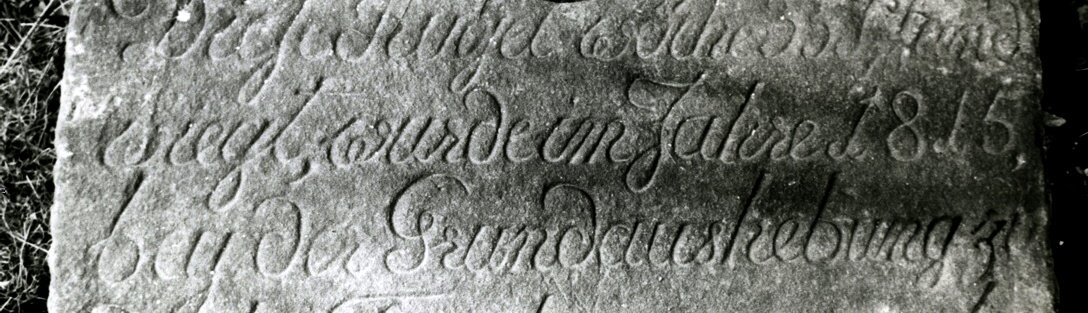 Diese Kugel welche Pfund
wiegt, wurde im Jahre 1815,
bey der Grundaushebung zu